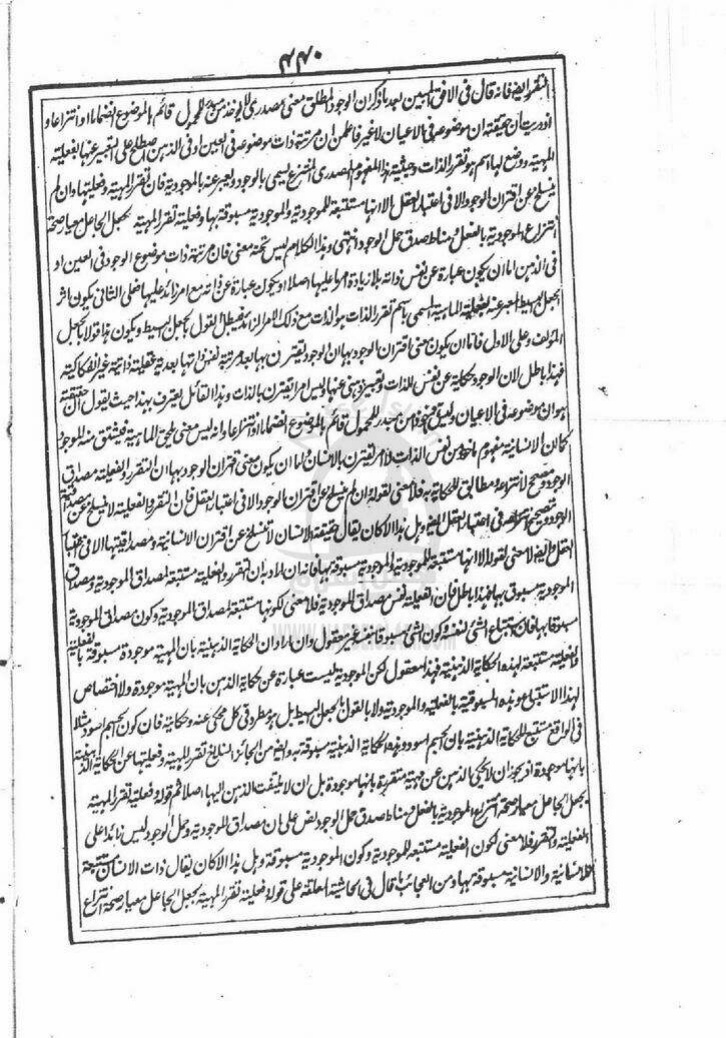 ٤٤٠
التقرر ايضا فانه قال في الافق المبين بعد ما ذكر ان الوجود المطلق معنى مصدري لا يوخذ من مبدء المحمول قائم بالموضوع انضماما او انتزاعا و
اودريت ان حقيقته ان موضوعه في الاعيان لا غير فاعلمن ان مرتبة ذات موضوعه في العين او في الذهن اصطلح على التعبير عنها بفعلية
المهية ووضع لها اسم هو تقرر الذات وحيثية هذا المفهوم المصدري المنتزع يسمى بالوجود والعبر عنه بالموجودية فان تقرر المهية وفعليتها وان لم
ينسلخ عن اقتران الوجود الا في اعتبار العقل الا انها مستتبعة للموجودية والموجودية مسبوقة بها وفعلية تقرر المهية بجعل الجاعل معيار صحة
انتزاع الموجودية بالفعل ومناط صدق حمل الوجود انتهى وهذا الكلام ليس تحته معنى فان مرتبة ذات موضوع الوجود في العين او
في الذهن اما ان يكون عبارة عن نفس ذاته بلا زيادة امر ما عليها اصلا او يكون عبارة عن ذاته مع امر زائد عليها فعلى الثاني يكون اثر
الجعل البسيط المعبر عنه بفعلية الماهية المسمى باسم تقرر الذات هو الذات مع ذلك الامر الزائد فيبطل القول بالجعل البسيط ويكون هذا قولا بالجعل
المؤلف وعلى الاول فاما ان يكون معنى اقتران الوجود بها ان الوجود يقترن بها بعد مرتبة نفس ذاتها بعدية عقلية ذاتية غير انفكاكية
فهذا باطل لان الوجود حكاية عن نفس الذات وتعبير ذهني عنها وليس امرا يقترن بالذات وهذا القائل يعترف بهذا حيث يقول ان حقيقته
هو ان موضوعه في الاعيان وليس ماخوذا من مبدء للمحمول قائم بالموضوع انضماما او انتزاعا وانه ليس معنى يلحق الماهية فيشتق منه الموجود
كما ان الانسانية مفهوم ماخوذ من نفس الذات لا امر يقترن بالانسان واما ان يكون معنى اقتران الوجود بها ان التقرر والفعلية مصداق
الوجود ومصحح لانتزاعه ومطابق للحكاية به فلا معنى لقوله ان لم ينسلخ عن اقتران الوجود الا في اعتبار العقل فان التقرر والفعلية لا ينسلخ عن مصداقية
الوجود وتصحيح انتزاعه في اعتبار العقل ايضا وهل هذا الا كان يقال حقيقة الانسان لا تنسلخ عن اقتران الانسانية ومصداقيتها الا في اعتبار
العقل وايضا لا معنى لقوله الا انها مستتبعة للموجودية والموجودية مسبوقة بها فانه ان اراد به ان التقرر والفعلية مستتبعة لمصداق الموجودية ومصداق
الموجودية مسبوق بها فهذا باطل فان الفعلية نفس مصداق للموجودية فلا معنى لكونها مستتبعة لمصداق الموجودية وكون مصداق الموجودية
مسبوقا بها فان استتباع الشئ لنفسه وكون الشئ مسبوقا بنفسه غير معقول وان اراد ان الحكاية الذهنية بان المهية موجودة مسبوقة بالفعلية
والفعلية مستتبعة لهذه الحكاية الذهنية فهذا معقول لكن الموجودية ليست عبارة عن حكاية الذهن بان المهية موجودة ولا اختصاص
لهذا الاستتباع وهذه المسبوقية بالفعلية والموجودية ولا بالقول بالجعل البسيط بل هو مطرد في كل محكي عنه وحكاية فان كون الجسم اسود مثلا
في الواقع مستتبع للحكاية الذهنية بان الجسم اسود وهذه الحكاية الذهنية مسبوقة به وايضا من الجائز انسلاخ تقرر المهية وفعليتها عن الحكاية الذهنية
بانها موجودة اذ يجوز ان لا يحكي بالذهن عن مهية متقررة بانها موجودة بل ان لا يلتفت الذهن اليها اصلا ثم قوله فعلية تقرر المهية
بجعل الجاعل معيار صحة انتزاع الموجودية بالفعل ومناط صدق حمل الوجود نص على بان مصداق للموجودية وحمل الوجود ليس زائدا على
الفعلية والتقرر فلا معنى لكون الفعلية مستتبعة للموجودية وكون الموجودية مسبوقة وهل هذا الا كان يقال ذات الانسان مستتبعة
للانسانية والانسانية مسبوقة بها ومن العجائب ما قال في الحاشية المعلقة على قوله وفعلية تقرر المهية بجعل الجاعل معيار صحة انتزاع